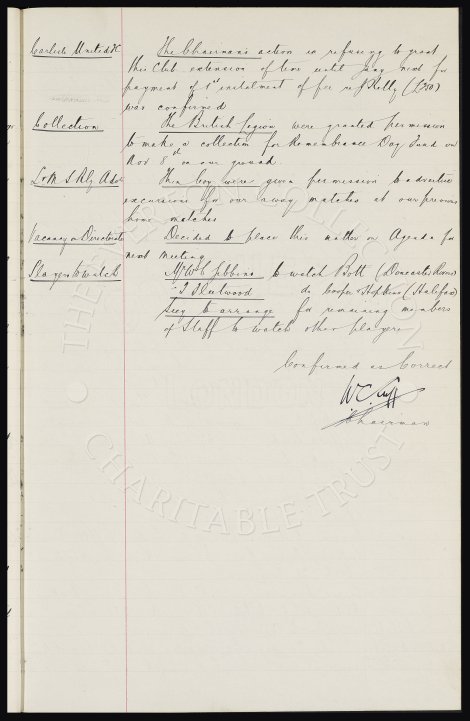 Carlisle United FC
The Chairman's action in refusing to grant
this Club extension of time until Jany next for
payment of 1st instalment of fee re J Kelly (£250)
was confirmed
Collection
The British Legion were granted permission
to make a collection for Remembrance Day Fund on
Nov 8th on our ground.
L & M S Rly Advt
This Coy were given permission to advertise
excursions for our away matches at our previous
home matches
Vacancy on Directorate
Decided to place this matter on Agenda for
next meeting
Players to watch
Mr W C Gibbins to watch Bott (Doncaster Rovers)
" J Fleetwood do Cooper & Hopkins (Halifax)
Secy to arrange for remaining members
of Staff to watch other players
Confirmed as Correct
W C Cuff
Chairman
THE EVERTON COLLECTION
CHARITABLE TRUST